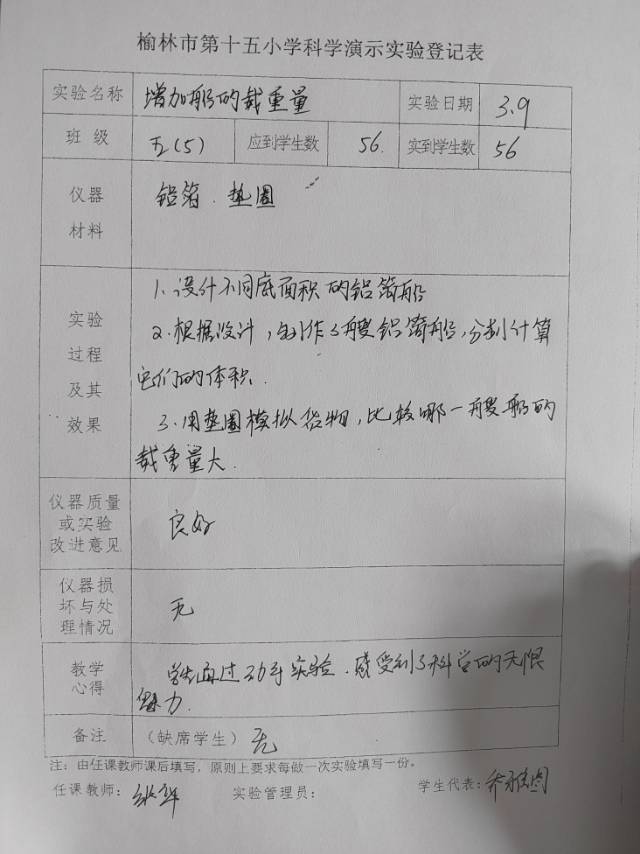 榆林市第十五小学科学演示实验登记表
实验名称 增加船的载重量 实验日期 3.9
班级 五(5) 应到学生数 56. 实到学生数 56
仪器材料 铝箔.垫圈
实验过程及其效果
1.设计不同底面积的铝箔船
2.根据设计,制作3艘铝箔船,分别计算
它们的体积.
3.用垫圈模拟货物,比较哪一艘船的
载重量大.
仪器质量或实验改进意见 良好
仪器损坏与处理情况 无
教学心得 学生通过动手实验.感受到了科学的无限
魅力.
备注 (缺席学生) 无
注:由任课教师课后填写,原则上要求每做一次实验填写一份。
任课教师: 实验管理员: 学生代表: